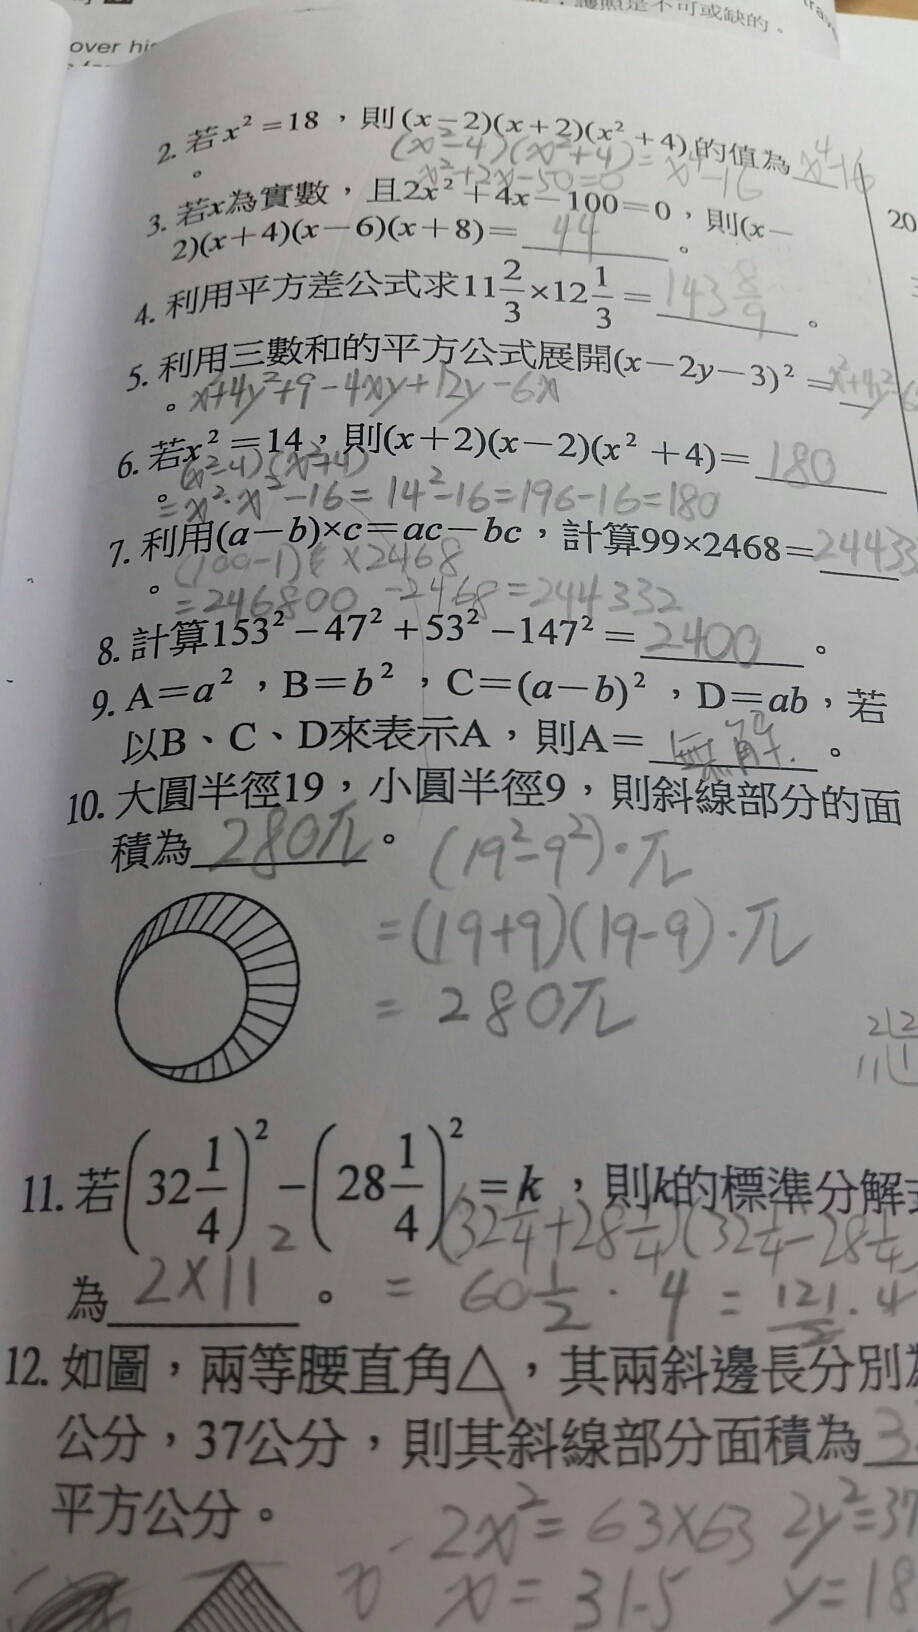 over
護照是不可或缺的。
2. 若x²=18，則(x−2)(x+2)(x²+4)的值為 x⁴−16
。 (x²−4)(x²+4)=x⁴−16
x²+2x−50=0
3. 若x為實數，且2x²+4x−100=0，則(x−
2)(x+4)(x−6)(x+8)= 44 。
4. 利用平方差公式求11 2/3×12 1/3= 143 8/9 。
5. 利用三數和的平方公式展開(x−2y−3)²= x²+4y²
。 x²+4y²+9−4xy+12y−6x
6. 若x²=14，則(x+2)(x−2)(x²+4)= 180
(x²−4)(x²+4)
。 =x²·x²−16=14²−16=196−16=180
7. 利用(a−b)×c=ac−bc，計算99×2468= 24433
(100−1) ×2468
。 =246800 −2468=244332
8. 計算153²−47²+53²−147²= 2400 。
9. A=a²，B=b²，C=(a−b)²，D=ab，若
以B、C、D來表示A，則A= 無解 。
10. 大圓半徑19，小圓半徑9，則斜線部分的面
積為 280π 。 (19²−9²)·π
=(19+9)(19−9)·π
=280π
11. 若(32 1/4)²−(28 1/4)²=k，則k的標準分解
(32 1/4+28 1/4)(32 1/4−28 1/4)
為 2×11² 。 = 60 1/2 · 4 = 121/2 · 4
12. 如圖，兩等腰直角△，其兩斜邊長分別
公分，37公分，則其斜線部分面積為
平方公分。
2x²=63×63 2y²=37
x=31.5 y=18
20